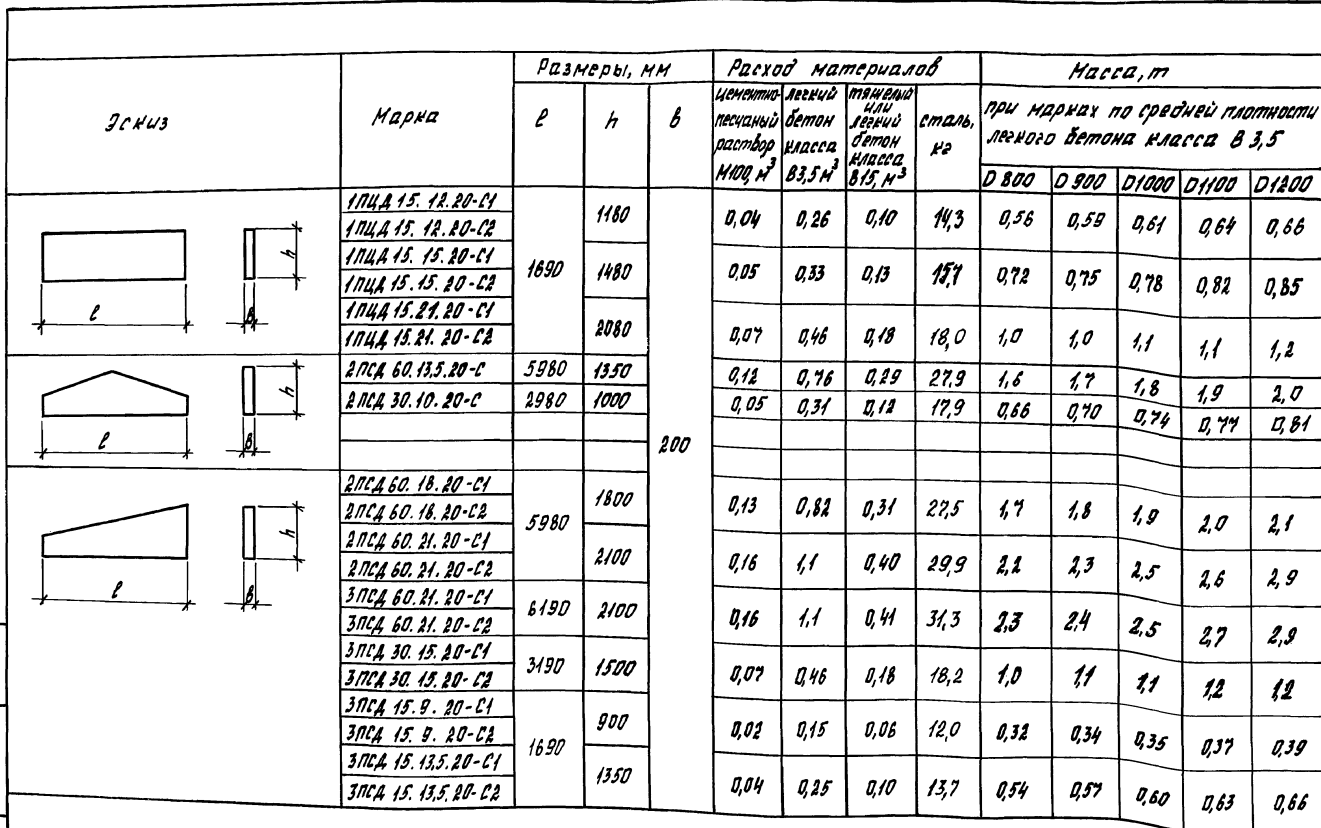 Эскиз Марка Размеры, мм Расход материалов Масса, т
ℓ h b цементно-песчаный раствор М100, м³ легкий бетон класса В3,5 м³ тяжелый или легкий бетон класса В15, м³ сталь, кг при марках по средней плотности легкого бетона класса В 3,5
D 800 D 900 D1000 D1100 D1200
1ПЦД 15. 12.20-С1 1690 1180 200 0,04 0,26 0,10 14,3 0,56 0,59 0,61 0,64 0,66
1ПЦД 15. 12. 20-С2
1ПЦД 15. 15. 20-С1 1480 0,05 0,33 0,13 15,7 0,72 0,75 0,78 0,82 0,85
1ПЦД 15. 15. 20-С2
1ПЦД 15.21. 20-С1 2080 0,07 0,46 0,18 18,0 1,0 1,0 1,1 1,1 1,2
1ПЦД 15.21. 20-С2
2ПСД 60.13,5.20-С 5980 1350 0,12 0,76 0,29 27,9 1,6 1,7 1,8 1,9 2,0
2ПСД 30.10.20-С 2980 1000 0,05 0,31 0,12 17,9 0,66 0,70 0,74 0,77 0,81
2ПСД 60. 18. 20-С1 5980 1800 0,13 0,82 0,31 27,5 1,7 1,8 1,9 2,0 2,1
2ПСД 60. 18. 20-С2
2ПСД 60. 21. 20-С1 2100 0,16 1,1 0,40 29,9 2,2 2,3 2,5 2,6 2,9
2ПСД 60. 21. 20-С2
3ПСД 60. 21. 20-С1 6190 2100 0,16 1,1 0,41 31,3 2,3 2,4 2,5 2,7 2,9
3ПСД 60. 21. 20-С2
3ПСД 30. 15. 20-С1 3190 1500 0,07 0,46 0,18 18,2 1,0 1,1 1,1 1,2 1,2
3ПСД 30. 15. 20-С2
3ПСД 15. 9. 20-С1 1690 900 0,02 0,15 0,06 12,0 0,32 0,34 0,35 0,37 0,39
3ПСД 15. 9. 20-С2
3ПСД 15. 13,5. 20-С1 1350 0,04 0,25 0,10 13,7 0,54 0,57 0,60 0,63 0,66
3ПСД 15. 13,5. 20-С2
h
ℓ b
h
ℓ b
h
ℓ b